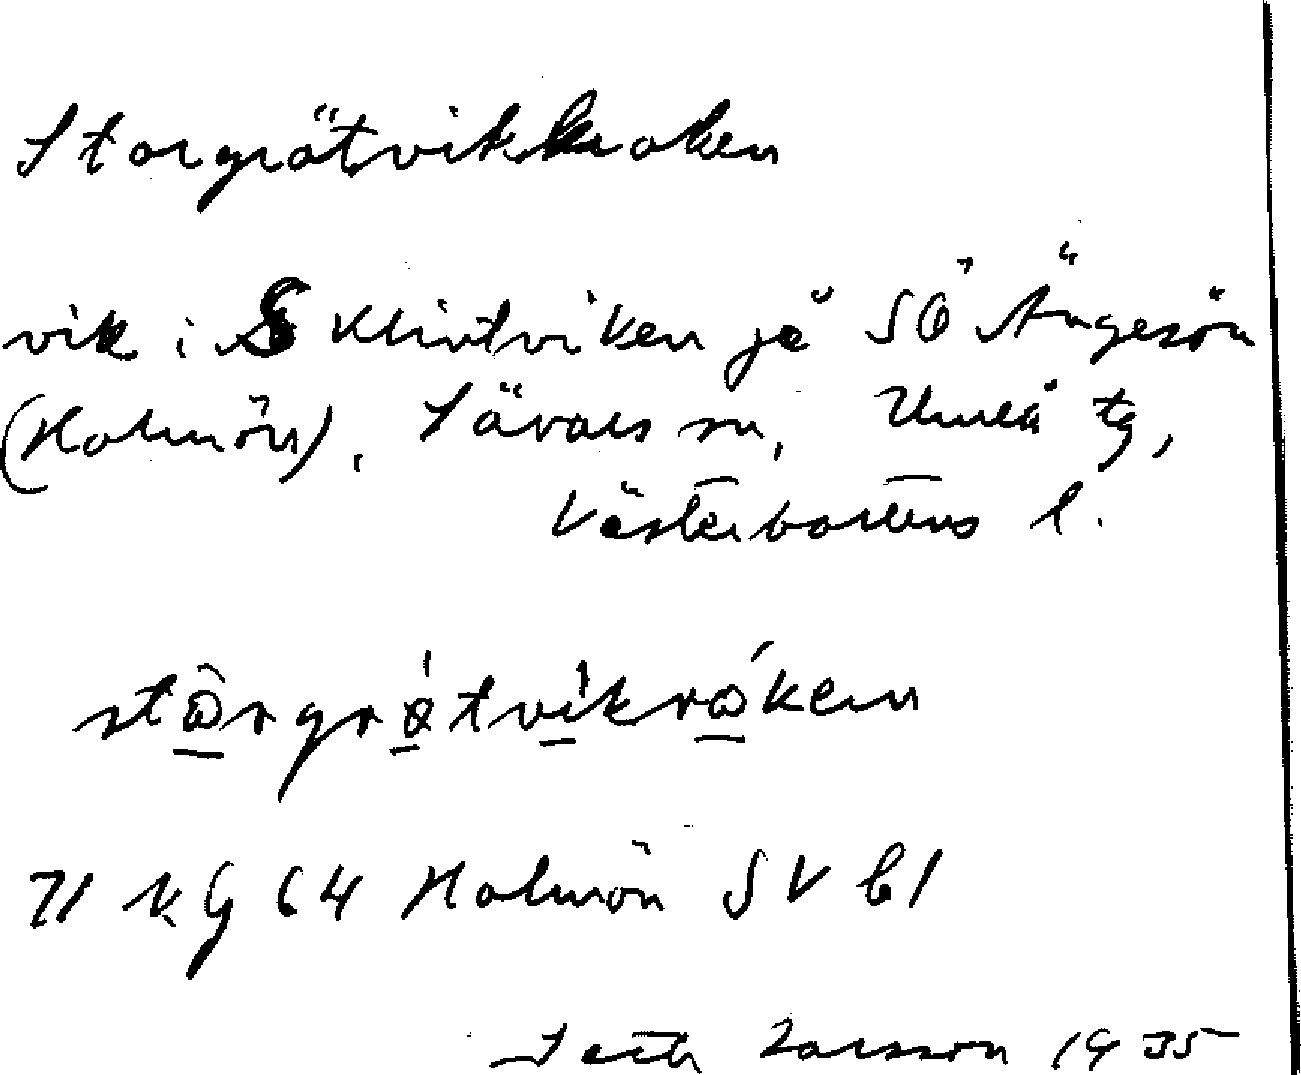 Storgrötvikkroken
vik i S Klintviken på SÖ Ängesön
(Holmön), Sävars sn, Umeå tg,
Västerbottens l.
71 KG 64 Holmön SV bl
Seth Larsson 1935